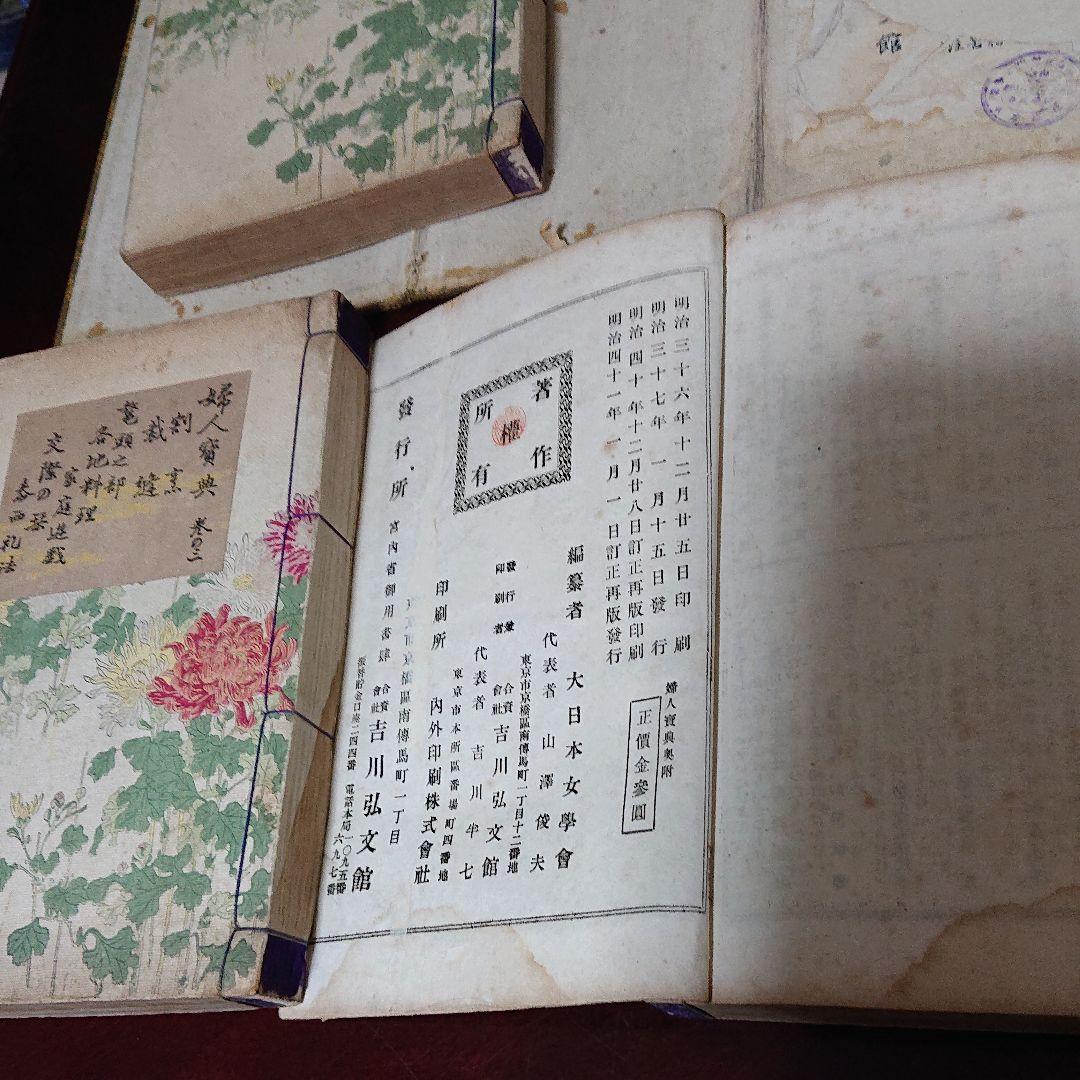 明治三十六年十二月廿五日印刷
明治三十七年一月十五日發行
明治四十年十二月廿八日訂正再版印刷
明治四十一年一月一日訂正再版發行
婦人寶典奧附
正價金參圓
著作
權
所有
編纂者 大日本女學會
代表者 山澤俊夫
東京市京橋區南傳馬町一丁目十二番地
發行兼
印刷者
合資
會社
吉川弘文館
代表者 吉川半七
東京市本所區番場町四番地
印刷所 內外印刷株式會社
東京市京橋區南傳馬町一丁目
發行所 宮內省御用書肆
合資
會社
吉川弘文館
振替貯金口座二四四番 電話本局
一〇九五番
六九七番
婦人寶典 卷の三
割烹
裁縫
鼇頭之部
各地料理
家庭遊戲
交際の栞
泰西礼法
館